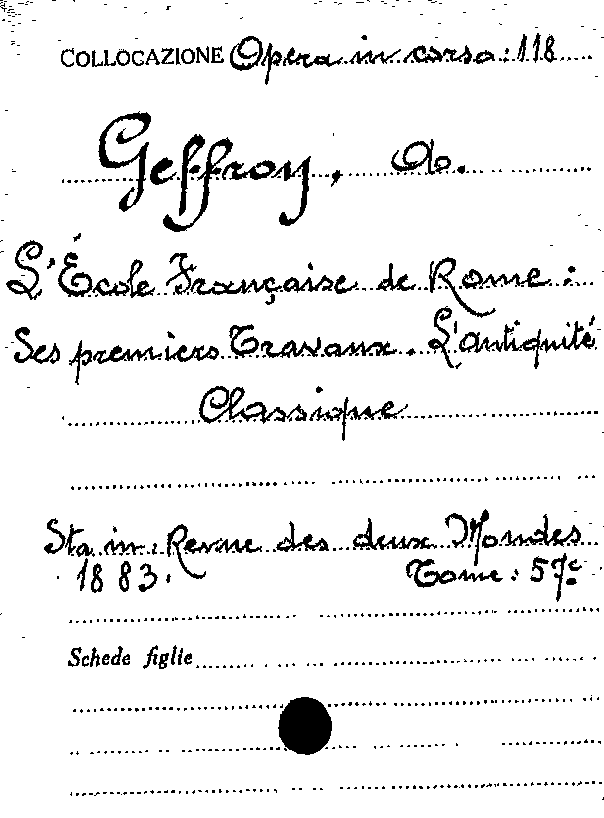 COLLOCAZIONE Opera in corso: 118
Geffroy, A.
L'École Française de Rome:
Ses premiers Travaux. L'antiquité
Classique
Sta in: Revue des deux Mondes
1883. Tome: 57e
Schede figlie